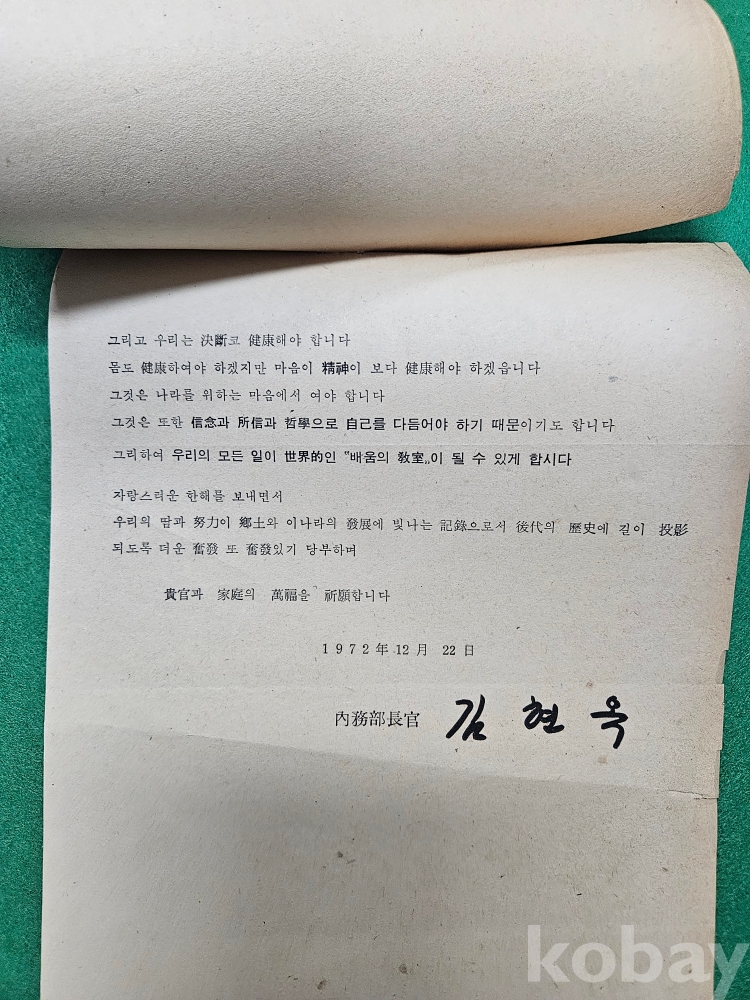 그리고 우리는 決斷코 健康해야 합니다
몸도 健康하여야 하겠지만 마음이 精神이 보다 健康해야 하겠읍니다
그것은 나라를 위하는 마음에서 여야 합니다
그것은 또한 信念과 所信과 哲學으로 自己를 다듬어야 하기 때문이기도 합니다
그리하여 우리의 모든 일이 世界的인 〝배움의 敎室〟이 될 수 있게 합시다
자랑스리운 한해를 보내면서
우리의 땀과 努力이 鄕土와 이나라의 發展에 빛나는 記錄으로서 後代의 歷史에 길이 投影
되도록 더운 奮發 또 奮發있기 당부하며
貴官과 家庭의 萬福을 祈願합니다
1972年 12月 22日
內務部長官 김현옥
kobay